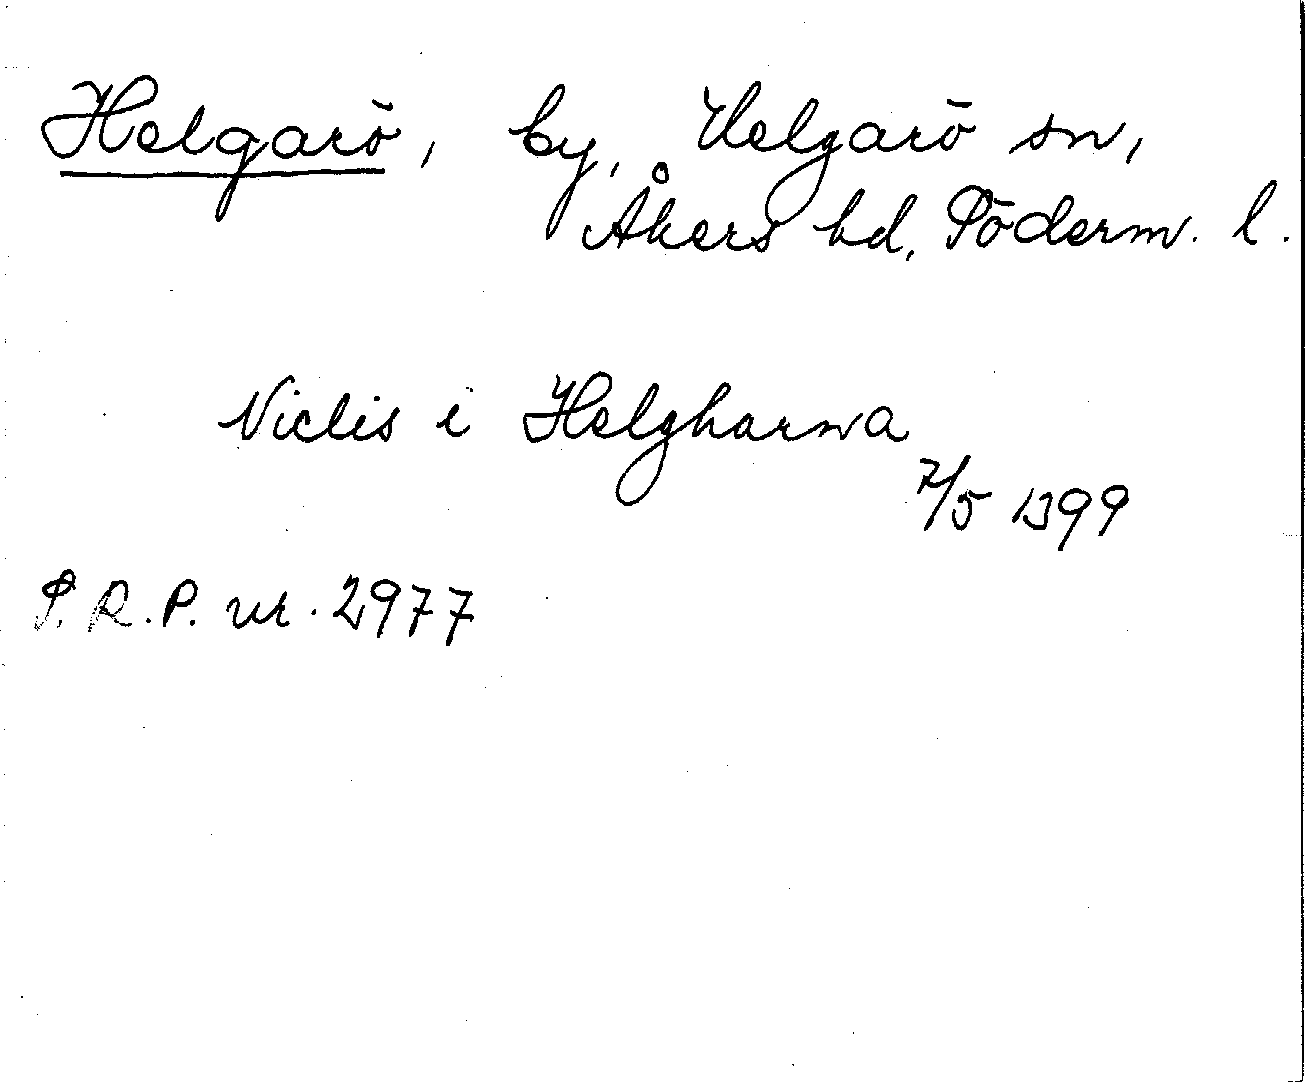 Helgarö, by, Helgarö sn,
Åkers hd, Söderm. l.
Niclis i Helgharna
7/5 1399
S.R.P. nr. 2977